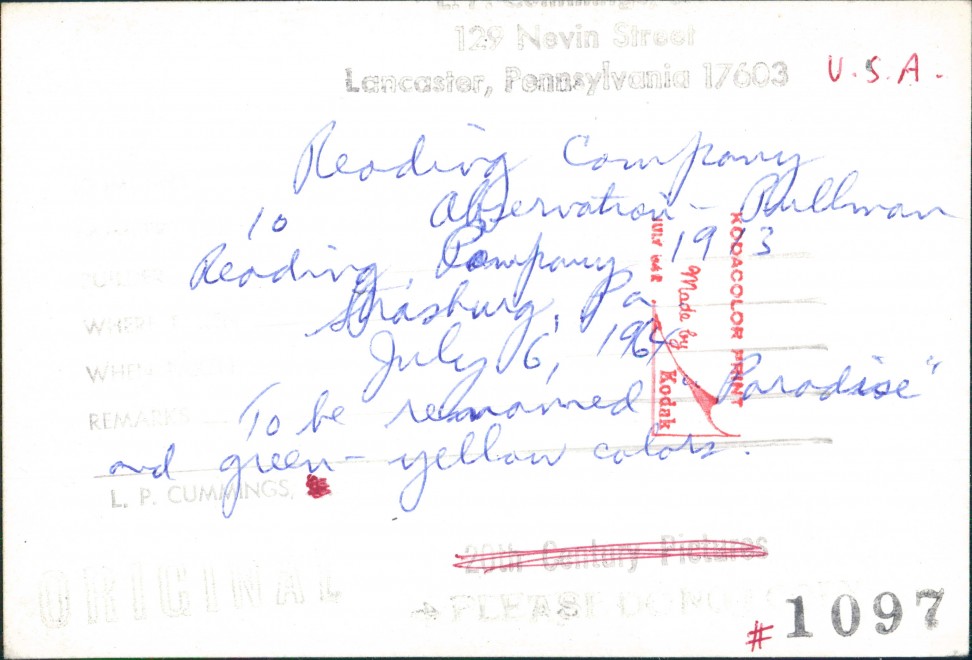 129 Nevin Street
Lancaster, Pennsylvania 17603
U.S.A.
Reading Company
10 Observation - Pullman
Reading Company 1913
Strasburg, Pa
July 6, 196
To be renamed "Paradise"
and green-yellow colors.
KODACOLOR PRINT
Made by
Kodak
WHERE
WHEN
REMARKS
L. P. CUMMINGS,
20th Century Pictures
ORIGINAL
→ PLEASE DO NOT
# 1097